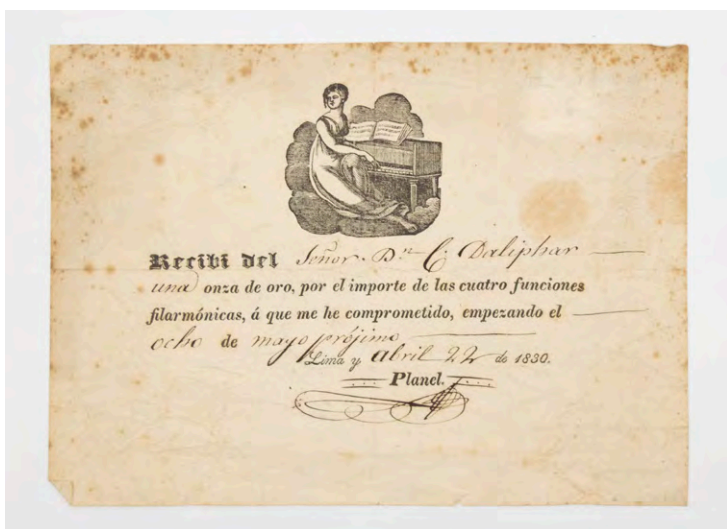 Recibí del Señor Dn C. Daliphar
una onza de oro, por el importe de las cuatro funciones
filarmónicas, á que me he comprometido, empezando el
ocho de mayo prójimo
Lima y abril 22 de 1830.
Planel.